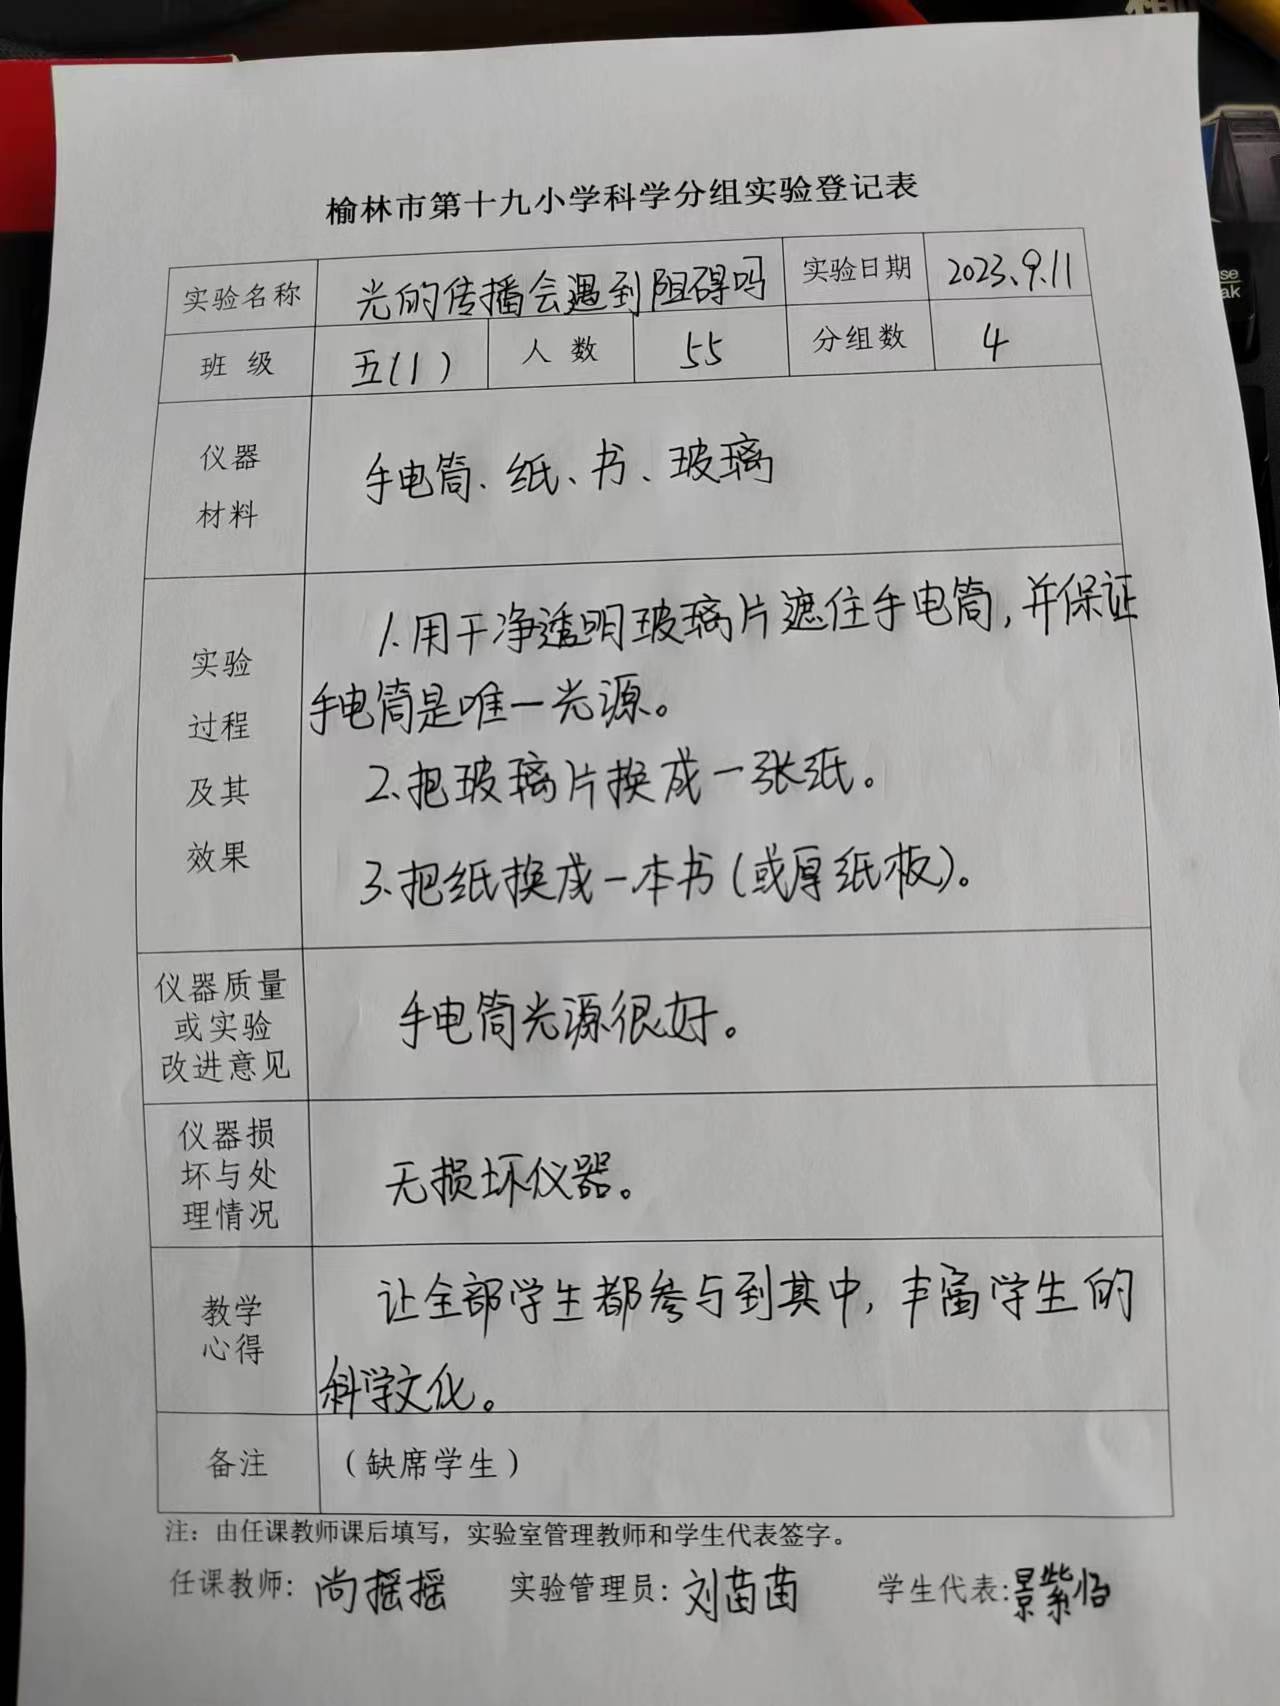 榆林市第十九小学科学分组实验登记表
实验名称 光的传播会遇到阻碍吗 实验日期 2023.9.11
班级 五(1) 人数 55 分组数 4
仪器
材料
手电筒、纸、书、玻璃
实验
过程
及其
效果
1.用干净透明玻璃片遮住手电筒,并保证
手电筒是唯一光源。
2.把玻璃片换成一张纸。
3.把纸换成一本书(或厚纸板)。
仪器质量
或实验
改进意见
手电筒光源很好。
仪器损
坏与处
理情况
无损坏仪器。
教学
心得
让全部学生都参与到其中,丰富学生的
科学文化。
备注 (缺席学生)
注:由任课教师课后填写,实验室管理教师和学生代表签字。
任课教师:尚摇摇 实验管理员:刘苗苗 学生代表:景紫怡